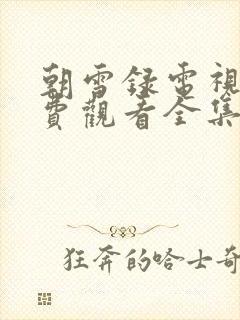 朝雪録電視
費觀看全集
狂奔的哈士奇